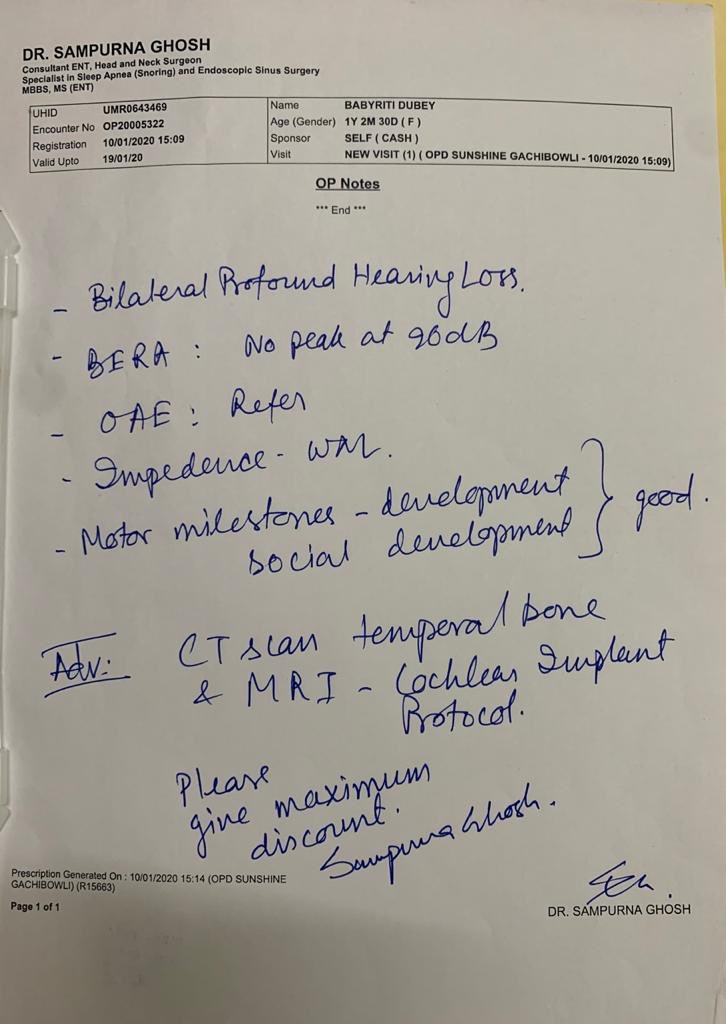 DR. SAMPURNA GHOSH
Consultant ENT, Head and Neck Surgeon
Specialist in Sleep Apnea (Snoring) and Endoscopic Sinus Surgery
MBBS, MS (ENT)
UHID UMR0643469 Name BABYRITI DUBEY
Encounter No OP20005322 Age (Gender) 1Y 2M 30D ( F )
Registration 10/01/2020 15:09 Sponsor SELF ( CASH )
Valid Upto 19/01/20 Visit NEW VISIT (1) ( OPD SUNSHINE GACHIBOWLI - 10/01/2020 15:09)
OP Notes
*** End ***
- Bilateral Profound Hearing Loss.
- BERA : No peak at 90dB
- OAE : Refer
- Impedence - WNL.
- Motor milestones - development
social development } good.
Adv: CT scan temporal bone
& MRI - Cochlear Implant
Protocol.
Please
give maximum
discount.
Sampurna Ghosh.
Prescription Generated On : 10/01/2020 15:14 (OPD SUNSHINE
GACHIBOWLI) (R15663)
Page 1 of 1
DR. SAMPURNA GHOSH